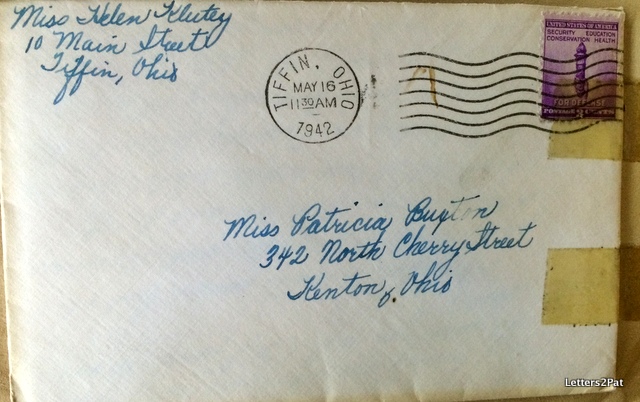 Miss Helen Flutey
10 Main Street
Tiffin, Ohio
TIFFIN, OHIO
MAY 16
11 30 AM
1942
UNITED STATES OF AMERICA
SECURITY EDUCATION
CONSERVATION HEALTH
FOR DEFENSE
POSTAGE 3 CENTS
Miss Patricia Buxton
342 North Cherry Street
Kenton, Ohio
Letters2Pat